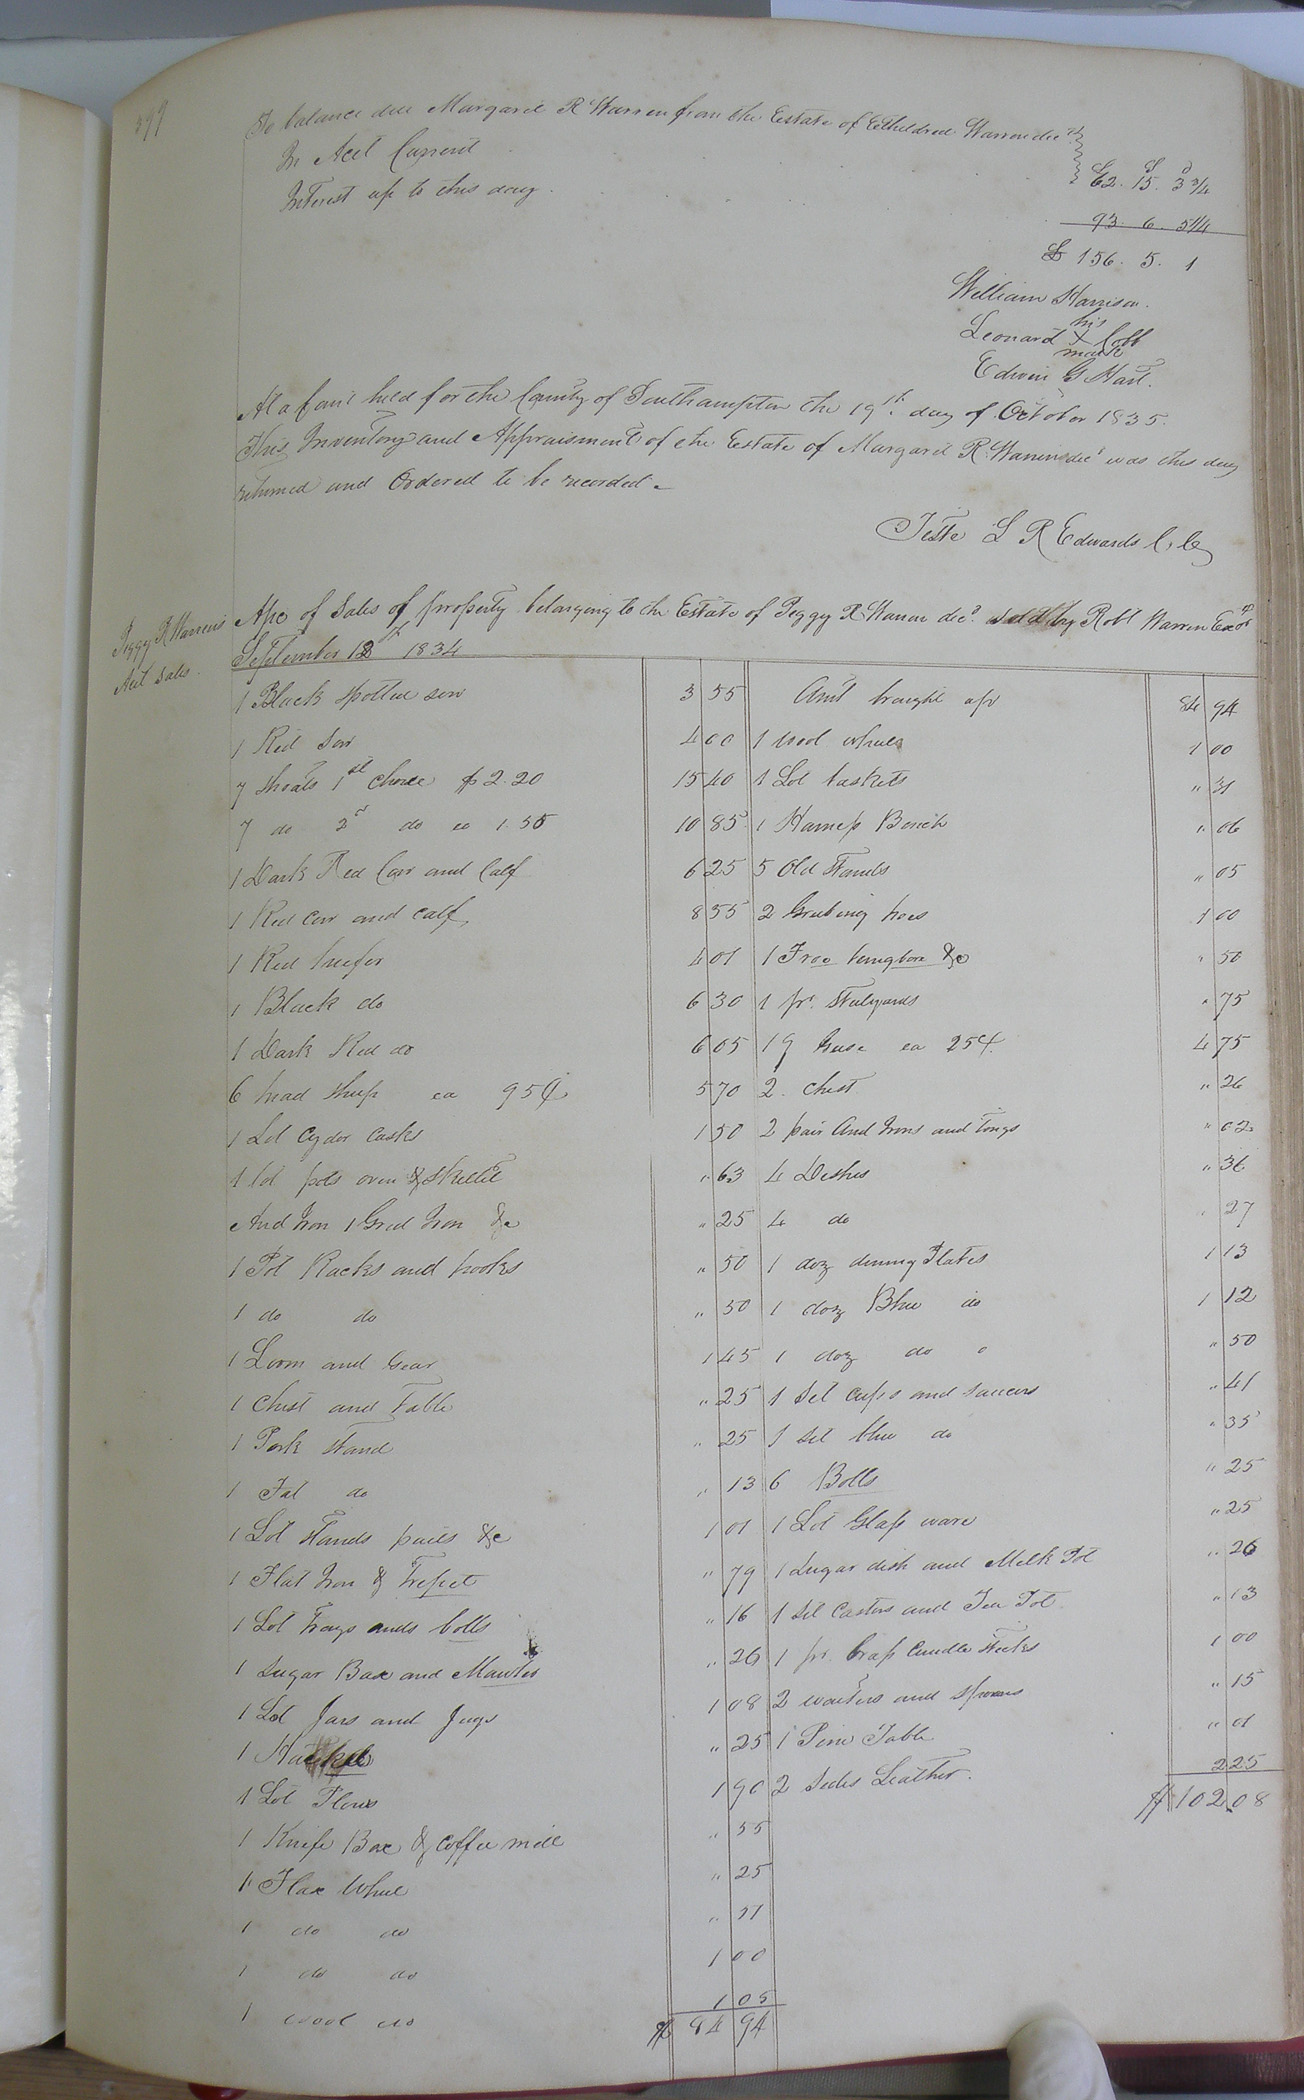 399
To balance due Margaret R Warren from the Estate of Etheldred Warren decd
In Acct Current £ 62. 15. 3 3/4
Interest up to this day. 93. 6. 5 1/4
£ 156. 5. 1
William Harrison.
Leonard his X mark Cobb
Edwin G Hart.
At a Court held for the County of Southampton the 19th day of October 1835.
This Inventory and Appraisment of the Estate of Margaret R. Warren decd was this day
returned and Ordered to be recorded.
Teste L R Edwards C.C.
Peggy R Warren's
Acct Sales.
Apc of Sales of property belonging to the Estate of Peggy R Warren decd. sold by Robt Warren Exor
September 18th 1834
1 Black spotted sow 3 55
1 Red Sow 4 00
7 Shoats 1st choice $ 2.20 15 40
7 do 2d do ea 1.55 10 85
1 Dark Red Cow and Calf 6 25
1 Red Cow and calf 8 55
1 Red heefer 4 01
1 Black do 6 30
1 Dark Red do 6 05
6 head Sheep ea 95¢ 5 70
1 Lot Cyder Casks 1 50
1 lot pots oven & Skillet " 63
And Iron 1 Grid Iron &c " 25
1 Pot Racks and hooks " 50
1 do do " 50
1 Loom and Gear 1 45
1 Chest and Table " 25
1 Pork Stand " 25
1 Fat do " 13
1 Lot Stands pails &c 1 01
1 Flat Iron & Trepet " 79
1 Lot Trays and bolls " 16
1 Sugar Box and " 26
1 Lot Jars and Jugs 1 08
1 " 25
1 Lot Plows 1 90
1 Knife Box & coffee mill " 55
1 Flax Wheel " 25
1 do do " 11
1 do do 1 00
1 wool do 1 05
$ 84 94
Amt brought up 84 94
1 wool wheel 1 00
1 Lot baskets " 31
1 Harness Bench " 06
5 Old Stands " 05
2 Grubing hoes 1 00
1 Froe &c " 50
1 pr. Stealyards " 75
19 Geese ea 25¢ 4 75
2 chest " 26
2 pair And Irons and tongs " 62
4 Dishes " 36
4 do " 27
1 doz dinning Plates 1 13
1 doz Blue do 1 12
1 doz do " 50
1 Set Cups and Saucers " 41
1 Set blue do " 35
6 Bolls " 25
1 Lot Glass ware " 25
1 Sugar dish and Milk Pot " 26
1 Set Castors and Tea Pot " 13
1 pr. brass Candle Sticks 1 00
2 waiters and spoons " 15
1 Pine Table " 01
2 Sides Leather. 2 25
$ 102.08